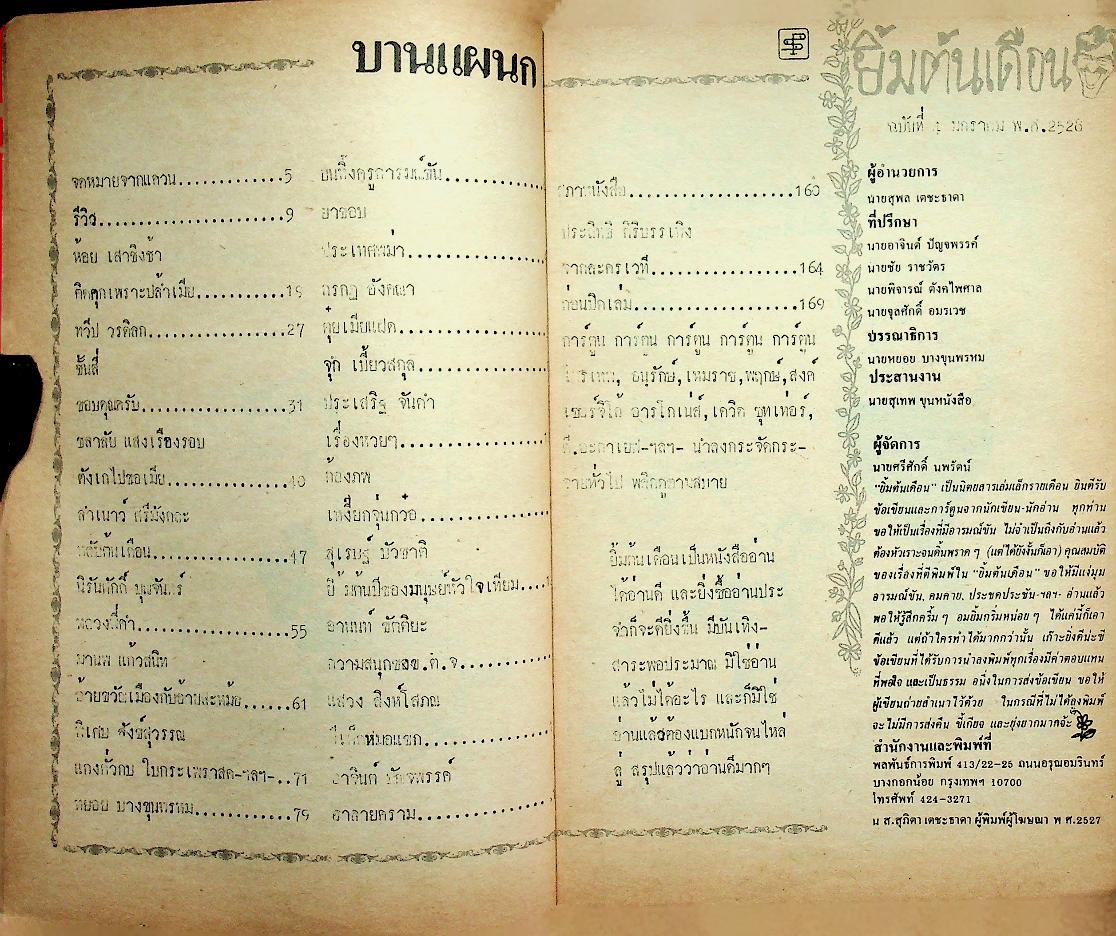 บานแผนก
จดหมายจากแควน..............5
รีวิว......................9
ห้อย เสาชิงช้า
คิดคุกเพราะปล้ำเมีย...........19
ทวีป วรดิลก.................27
ขันสี่
ขอบคุณครับ.................31
ชลาลัย แสงเรืองรอบ
ตังเกไปขอเมีย...............40
สำเนาว์ ศรีมังกละ
หลับต้นเดือน................47
นิรันศักดิ์ บุญจันทร์
หลวงพี่คำ..................55
มานพ แก้วสนิท
อ้ายขวัญเมืองกับอ้ายสะหม้อ......61
พิเศษ สังข์สุวรรณ
แกงคั่วกบ ใบกระเพราสด-ฯลฯ-..71
หยอย บางขุนพรหม............79
ยาขอบ
ประเทศพม่า
คุยเมียแฝด
จุก เบี้ยวสกุล
ประเสริฐ จันดำ
เรื่องหวยๆ
เหงี่ยกจุ่นกวอ
สุเรษฐ์ บัวชาติ
ยิ้มต้นปีของมนุษย์หัวใจเทียม
อานนท์ ขัตติยะ
ความสนุกของข.ต.จ
แสวง สิงห์โสภณ
อาจินต์ ปัญจพรรค์
อาลายคราม
สภาหนังสือ..................160
ประสิทธิ ศิริบรรเทิง
จากละครเวที.................164
ก่อนปิดเล่ม..................169
การ์ตูน การ์ตูน การ์ตูน การ์ตูน การ์ตูน
อนุรักษ์,เหมราช,พฤกษ์,สงค์
เซอร์จิโอ อารโกเนส์,เควิด ซุทเห่อร์,
-ฯลฯ- นำลงกระจัดกระ-
จายทั่วไป พลิกดูตามสบาย
ยิ้มต้นเดือนเป็นหนังสืออ่าน
ได้อ่านดี และยิ่งซื้ออ่านประ
จำก็จะดียิ่งขึ้น มีบันเทิง-
สาระพอประมาณ มิใช่อ่าน
แล้วไม่ได้อะไร และก็มิใช่
อ่านแล้วต้องแบกหนักจนไหล่
ลู่ สรุปแล้วว่าอ่านดีมากๆ
ยิ้มต้นเดือน
ฉบับที่ มกราคม พ.ศ.2528
ผู้อำนวยการ
นายสุพล เตชะธาดา
ที่ปรึกษา
นายอาจินต์ ปัญจพรรค์
นายชัย ราชวัตร
นายพิจารณ์ ตังคไพศาล
นายจุลศักดิ์ อมรเวช
บรรณาธิการ
นายหยอย บางขุนพรหม
ประสานงาน
นายสุเทพ ขุนหนังสือ
ผู้จัดการ
นายศรีศักดิ์ นพรัตน์
"ยิ้มต้นเดือน" เป็นนิตยสารเล่มเล็กรายเดือน ยินดีรับ
ข้อเขียนและการ์ตูนจากนักเขียน-นักอ่าน ทุกท่าน
ขอให้เป็นเรื่องที่มีอารมณ์ขัน ไม่จำเป็นถึงกับอ่านแล้ว
ต้องหัวเราะจนดิ้นพราด ๆ (แต่ได้ยังงั้นก็เอา) คุณสมบัติ
ของเรื่องที่ตีพิมพ์ใน "ยิ้มต้นเดือน" ขอให้มีแง่มุม
อารมณ์ขัน, คมคาย, ประชดประชัน-ฯลฯ- อ่านแล้ว
พอให้รู้สึกครึ้ม ๆ อมยิ้มกริ่มหน่อย ๆ ได้แค่นี้ก็เอา
ดีแล้ว แต่ถ้าใครทำได้มากกว่านั้น เก๊าะยิ่งดีน่ะซี
ข้อเขียนที่ได้รับการนำลงพิมพ์ทุกเรื่องมีค่าตอบแทน
ที่พอใจ และเป็นธรรม อนึ่งในการส่งข้อเขียน ขอให้
ผู้เขียนถ่ายสำเนาไว้ด้วย ในกรณีที่ไม่ได้ลงพิมพ์
จะไม่มีการส่งคืน ขี้เกียจ และยุ่งยากมากจ้ะ
สำนักงานและพิมพ์ที่
พลพันธ์การพิมพ์ 413/22-25 ถนนอรุณอมรินทร์
บางกอกน้อย กรุงเทพฯ 10700
โทรศัพท์ 424-3271
น.ส.สุภิดา เตชะธาดา ผู้พิมพ์ผู้โฆษณา พ.ศ.2527